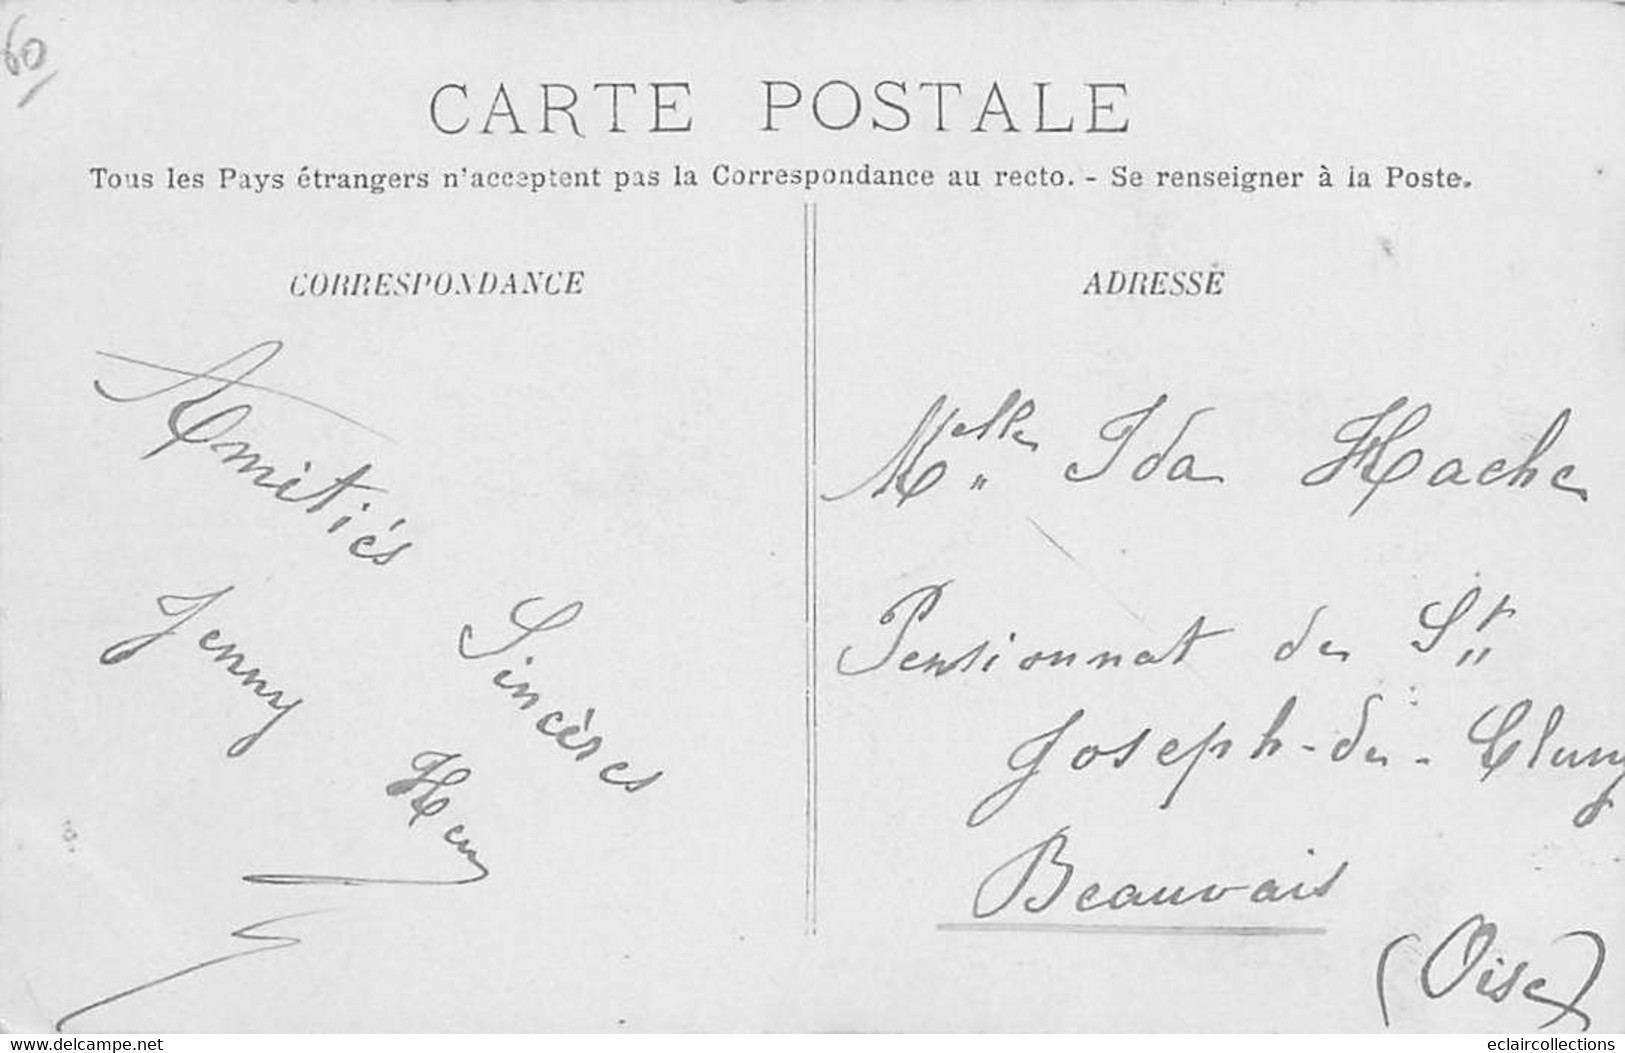 60
CARTE POSTALE
Tous les Pays étrangers n'acceptent pas la Correspondance au recto. - Se renseigner à la Poste.
CORRESPONDANCE
Amitiés
Sincères
Jenny
ADRESSE
Melle Ida Hache
Pensionnat de St
Joseph-de-Cluny
Beauvais
(Oise)
www.delcampe.net
eclaircollections